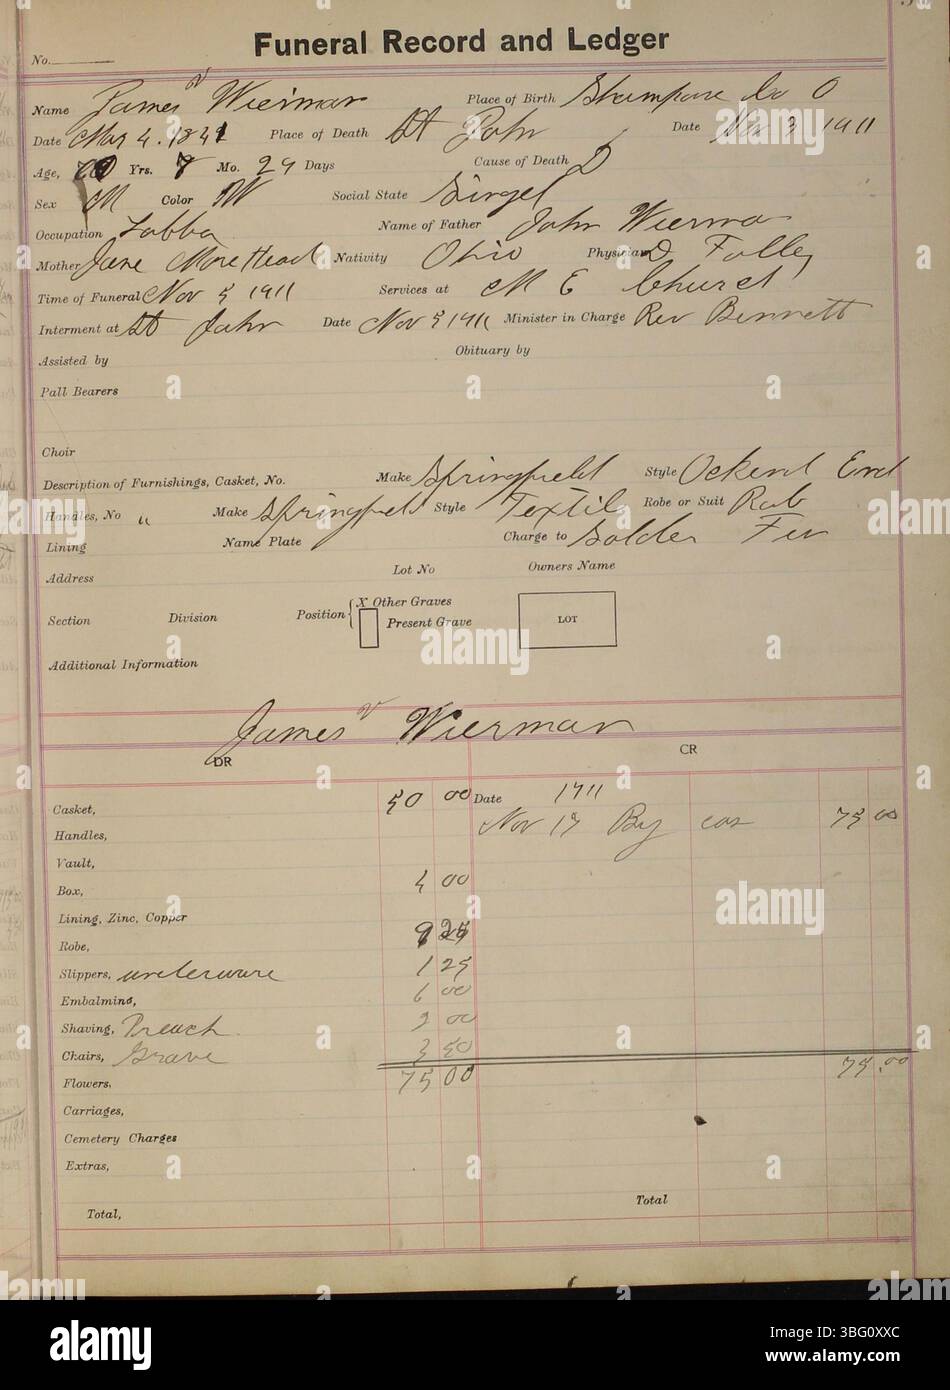 Funeral Record and Ledger
No.
Name James V Wierman Place of Birth Co O
Date Mar 4. 1841 Place of Death St John Date Nov 3 1911
Age, 70 Yrs. 7 Mo. 29 Days Cause of Death D
Sex M Color W Social State Singel
Occupation Name of Father John Wierma
Mother Jane More Head Nativity Ohio Physician D Folley
Time of Funeral Nov 5 1911 Services at M E Churcl
Interment at St John Date Nov 5 1911 Minister in Charge Rev Bennett
Assisted by Obituary by
Pall Bearers
Choir
Description of Furnishings, Casket, No. Make Springfield Style Ockend End
Handles, No " Make Springfield Style Textil Robe or Suit Rob
Lining Name Plate Charge to Solder
Address Lot No Owners Name
Section Division Position { X Other Graves
Present Grave
LOT
Additional Information
James V Wierman
DR CR
Casket, 50 00 Date 1911
Handles, Nov 17 By cas 75 00
Vault,
Box, 4 00
Lining, Zinc, Copper
Robe, 9 25
Slippers, underware 1 25
Embalming, 6 00
Shaving, Preach 2 00
Chairs, Grave 2 50
Flowers, 75 00 75.00
Carriages,
Cemetery Charges
Extras,
Total, Total
alamy
Image ID: 3BG0XXC
www.alamy.com